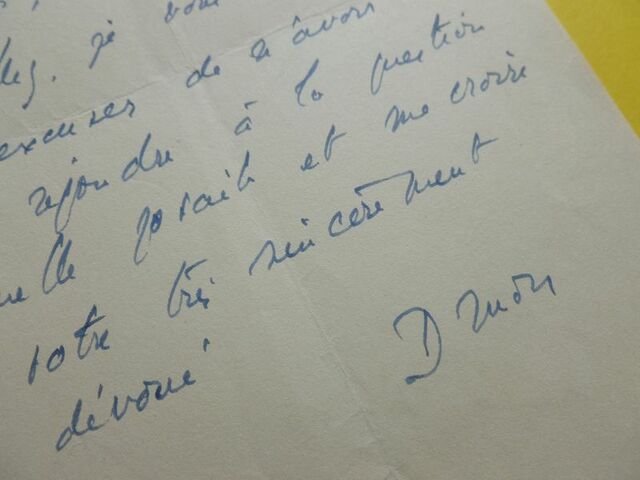 je vous
excuser de n'avoir
répondre à la question
elle posait et me croire
votre très sincèrement
dévoué
Druon